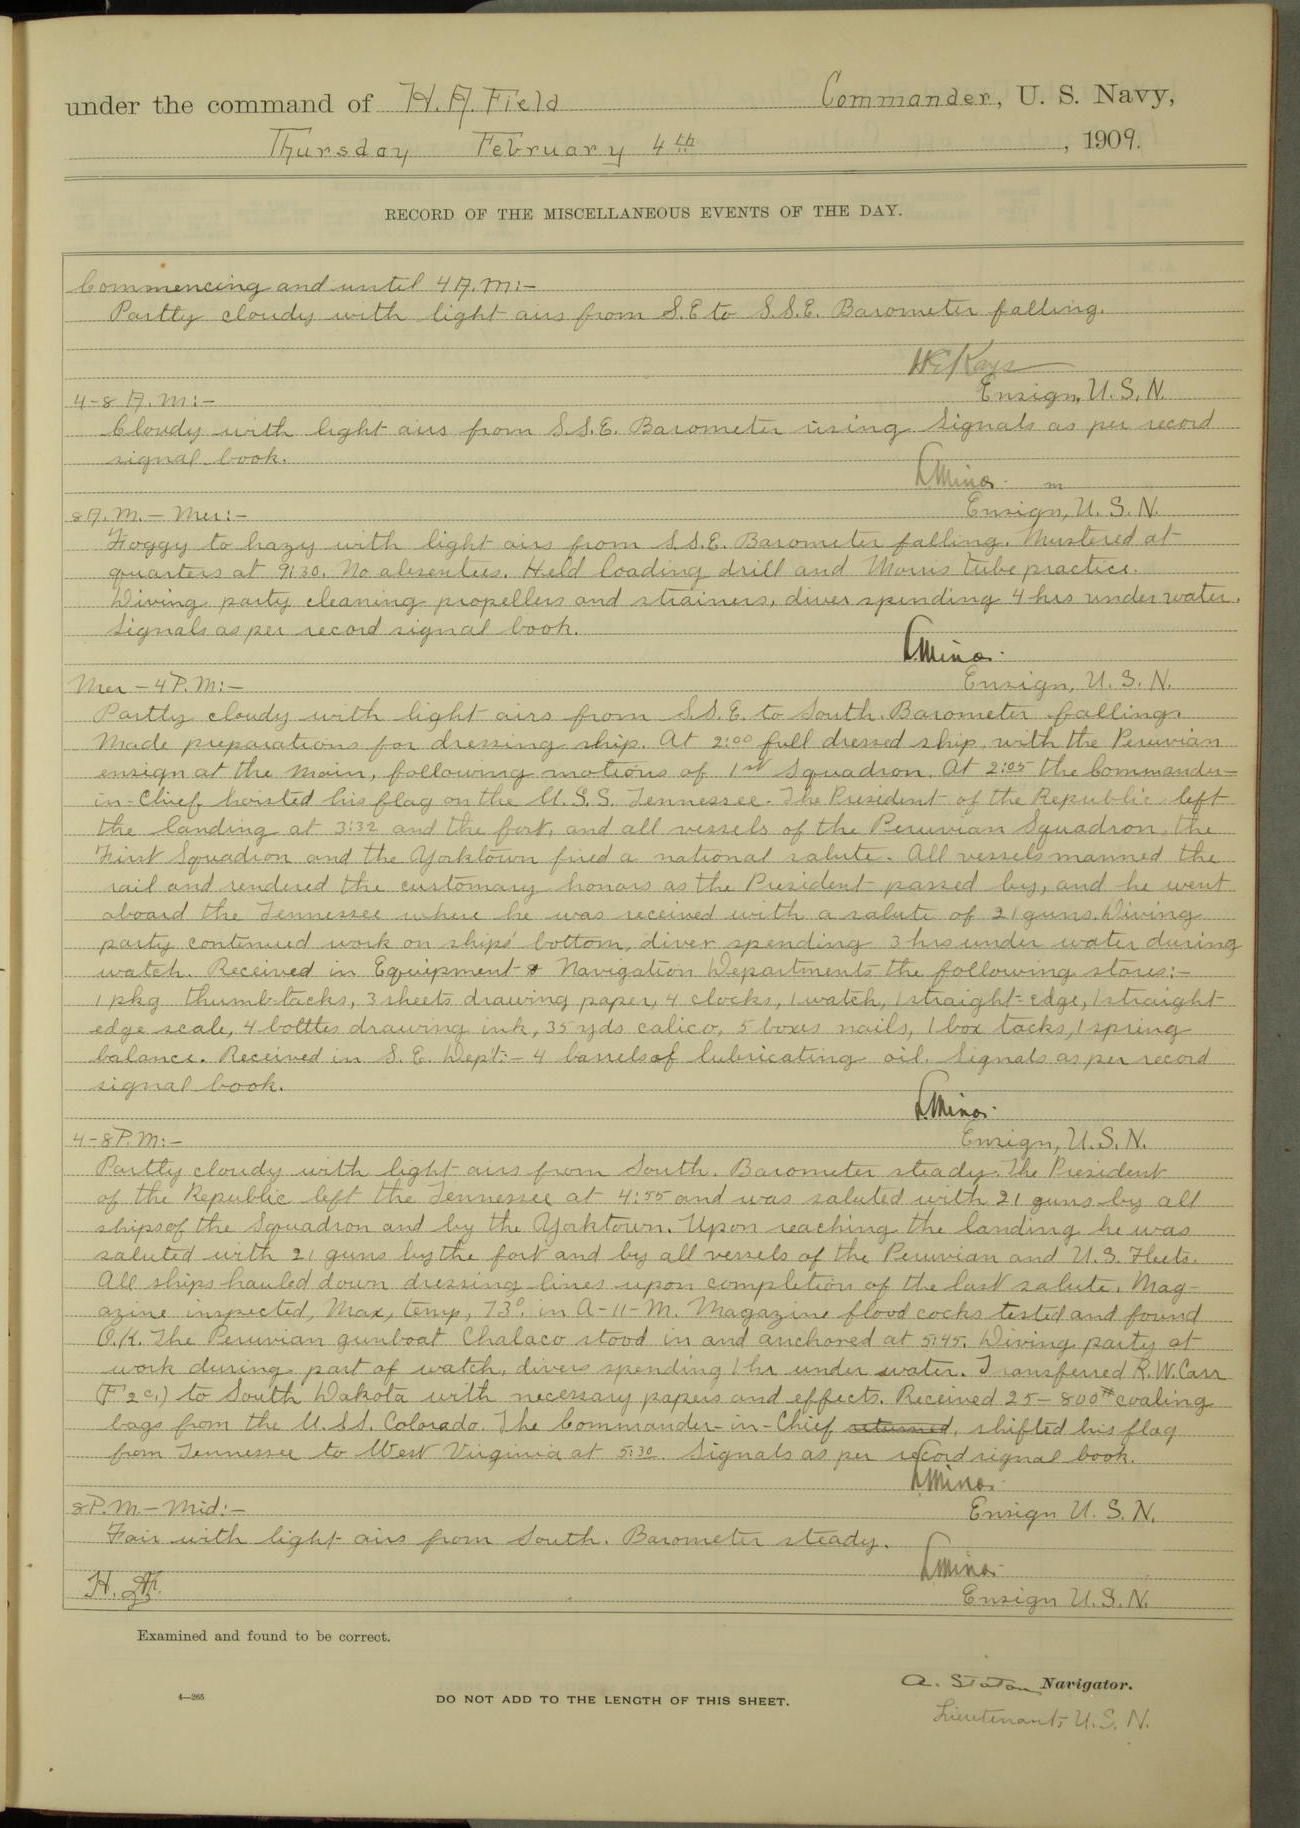 under the command of H. A. Field Commander, U. S. Navy,
Thursday February 4th, 1909.
RECORD OF THE MISCELLANEOUS EVENTS OF THE DAY.
Commencing and until 4 A.M:-
Partly cloudy with light airs from S.E to S.S.E. Barometer falling.
Ensign, U.S.N.
4-8 A.M:-
Cloudy with light airs from S.S.E. Barometer rising. Signals as per record
signal book.
L Minor
Ensign, U.S.N.
8 A.M.- Mer:-
Foggy to hazy with light airs from S.S.E. Barometer falling. Mustered at
quarters at 9:30. No absentees. Held loading drill and Morris tube practice.
Diving party cleaning propellers and strainers, diver spending 4 hrs under water.
Signals as per record signal book.
L Minor
Ensign, U.S.N.
Mer - 4 P.M:-
Partly cloudy with light airs from S.S.E. to South. Barometer falling.
Made preparations for dressing ship. At 2:00 full dressed ship with the Peruvian
ensign at the main, following motions of 1st Squadron. At 2:05 the Commander-
in-Chief hoisted his flag on the U.S.S. Tennessee. The President of the Republic left
the landing at 3:32 and the fort, and all vessels of the Peruvian Squadron, the
First Squadron and the Yorktown fired a national salute. All vessels manned the
rail and rendered the customary honors as the President passed by, and he went
aboard the Tennessee where he was received with a salute of 21 guns. Diving
party continued work on ships' bottom, diver spending 3 hrs under water during
watch. Received in Equipment & Navigation Departments the following stores:-
1 pkg thumb-tacks, 3 sheets drawing paper, 4 clocks, 1 watch, 1 straight-edge, 1 straight-
edge scale, 4 bottles drawing ink, 35 yds calico, 5 boxes nails, 1 box tacks, 1 spring
balance. Received in S. E. Dep't:- 4 barrels of lubricating oil. Signals as per record
signal book.
L Minor
4-8 P.M:-
Ensign, U.S.N.
Partly cloudy with light airs from South. Barometer steady. The President
of the Republic left the Tennessee at 4:55 and was saluted with 21 guns by all
ships of the Squadron and by the Yorktown. Upon reaching the landing he was
saluted with 21 guns by the fort and by all vessels of the Peruvian and U.S. Fleets.
All ships hauled down dressing lines upon completion of the last salute. Mag-
azine inspected, Max, temp, 73°, in A-11-M. Magazine flood cocks tested and found
O.K. The Peruvian gunboat Chalaco stood in and anchored at 5:45. Diving party at
work during part of watch, divers spending 1 hr under water. Transferred R.W. Carr
(F 2c.) to South Dakota with necessary papers and effects. Received 25-800# coaling
bags from the U.S.S. Colorado. The Commander-in-Chief returned, shifted his flag
from Tennessee to West Virginia at 5:30. Signals as per record signal book.
L Minor
8 P.M - Mid:-
Ensign U.S.N.
Fair with light airs from South. Barometer steady.
L Minor
Ensign U.S.N.
Examined and found to be correct.
A. Staton Navigator.
Lieutenant, U.S.N.
4—265
DO NOT ADD TO THE LENGTH OF THIS SHEET.